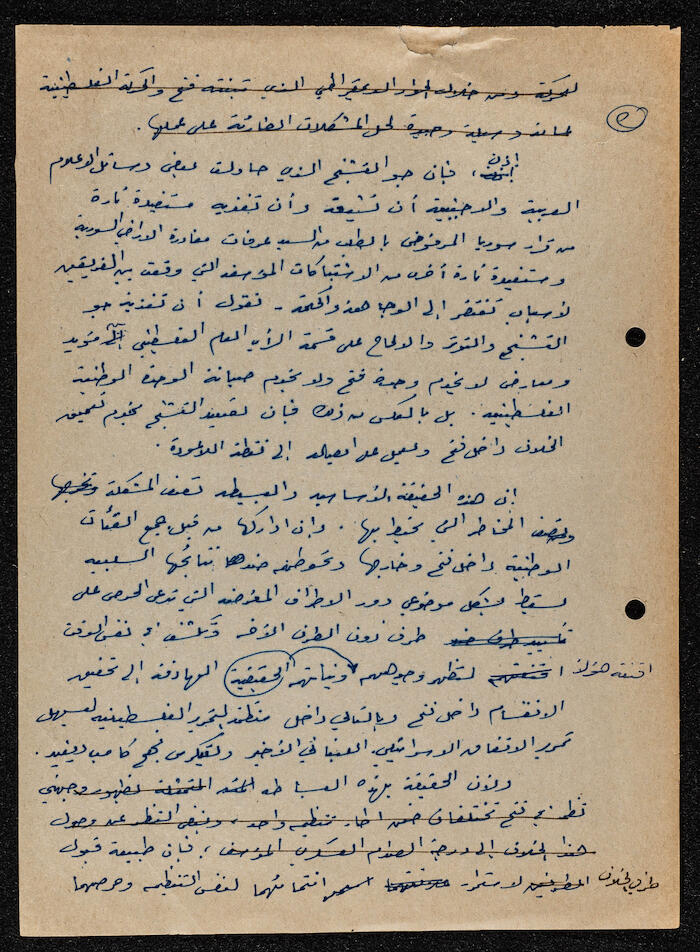 للحركة ومن خلال الحوار الديمقراطي الذي تبنته فتح والحركة الفلسطينية
٢
وسيلة وحيدة لحل المشكلات الطارئة على عملها.
إذن، فإن جو التشنج الذي حاولت بعض وسائل الاعلام
العربية والاجنبية أن تشيعه وأن تغذيه مستفيدة تارة
من قرار سوريا المرفوض بالطلب من السيد عرفات مغادرة الاراضي السورية
ومستفيدة تارة أخرى من الاشتباكات المؤسفة التي وقعت بين الفريقين
لأسباب تفتقر إلى الوجاهة والحكمة - نقول أن تغذية جو
التشنج والتوتر والالحاح على قسمة الرأي العام الفلسطيني إلى مؤيد
ومعارض لا يخدم وحدة فتح ولا يخدم صيانة الوحدة الوطنية
الفلسطينية. بل بالعكس من ذلك فإن تصعيد التشنج يخدم تعميق
الخلاف داخل فتح ويعمل على ايصاله إلى نقطة اللاعودة.
إن هذه الحقيقة الأساسية والبسيطة تصف المشكلة
المخاطر التي تحيط بها. وإن ادراكها من قبل جميع الفئات
الوطنية داخل فتح وخارجها ضد نتائجها السلبية
يسقط بشكل موضوعي دور الاطراف المغرضة التي تدعي الحرص على
طرف دون الطرف الآخر وتكشف في نفس الوقت
اقنعة هؤلاء لتظهر وجوههم ونياتهم الحقيقية الهادفة إلى تحقيق
الانقسام داخل فتح وبالتالي داخل منظمة التحرير الفلسطينية لتسهيل
تمرير الاتفاق الاسرائيلي اللبناني الأخير ولتكريس نهج كامب ديفيد.
ولأن الحقيقة بهذه البساطة المتمثلة بظهور وجهتي
نظر في فتح تختلفان ضمن اطار تنظيم واحد، وبغض النظر عن وصول
هذا الخلاف إلى درجة الصدام العسكري المؤسف، فإن طبيعة قبول
طرفي الخلاف لاستمرار انتمائهما لنفس التنظيم وحرصهما